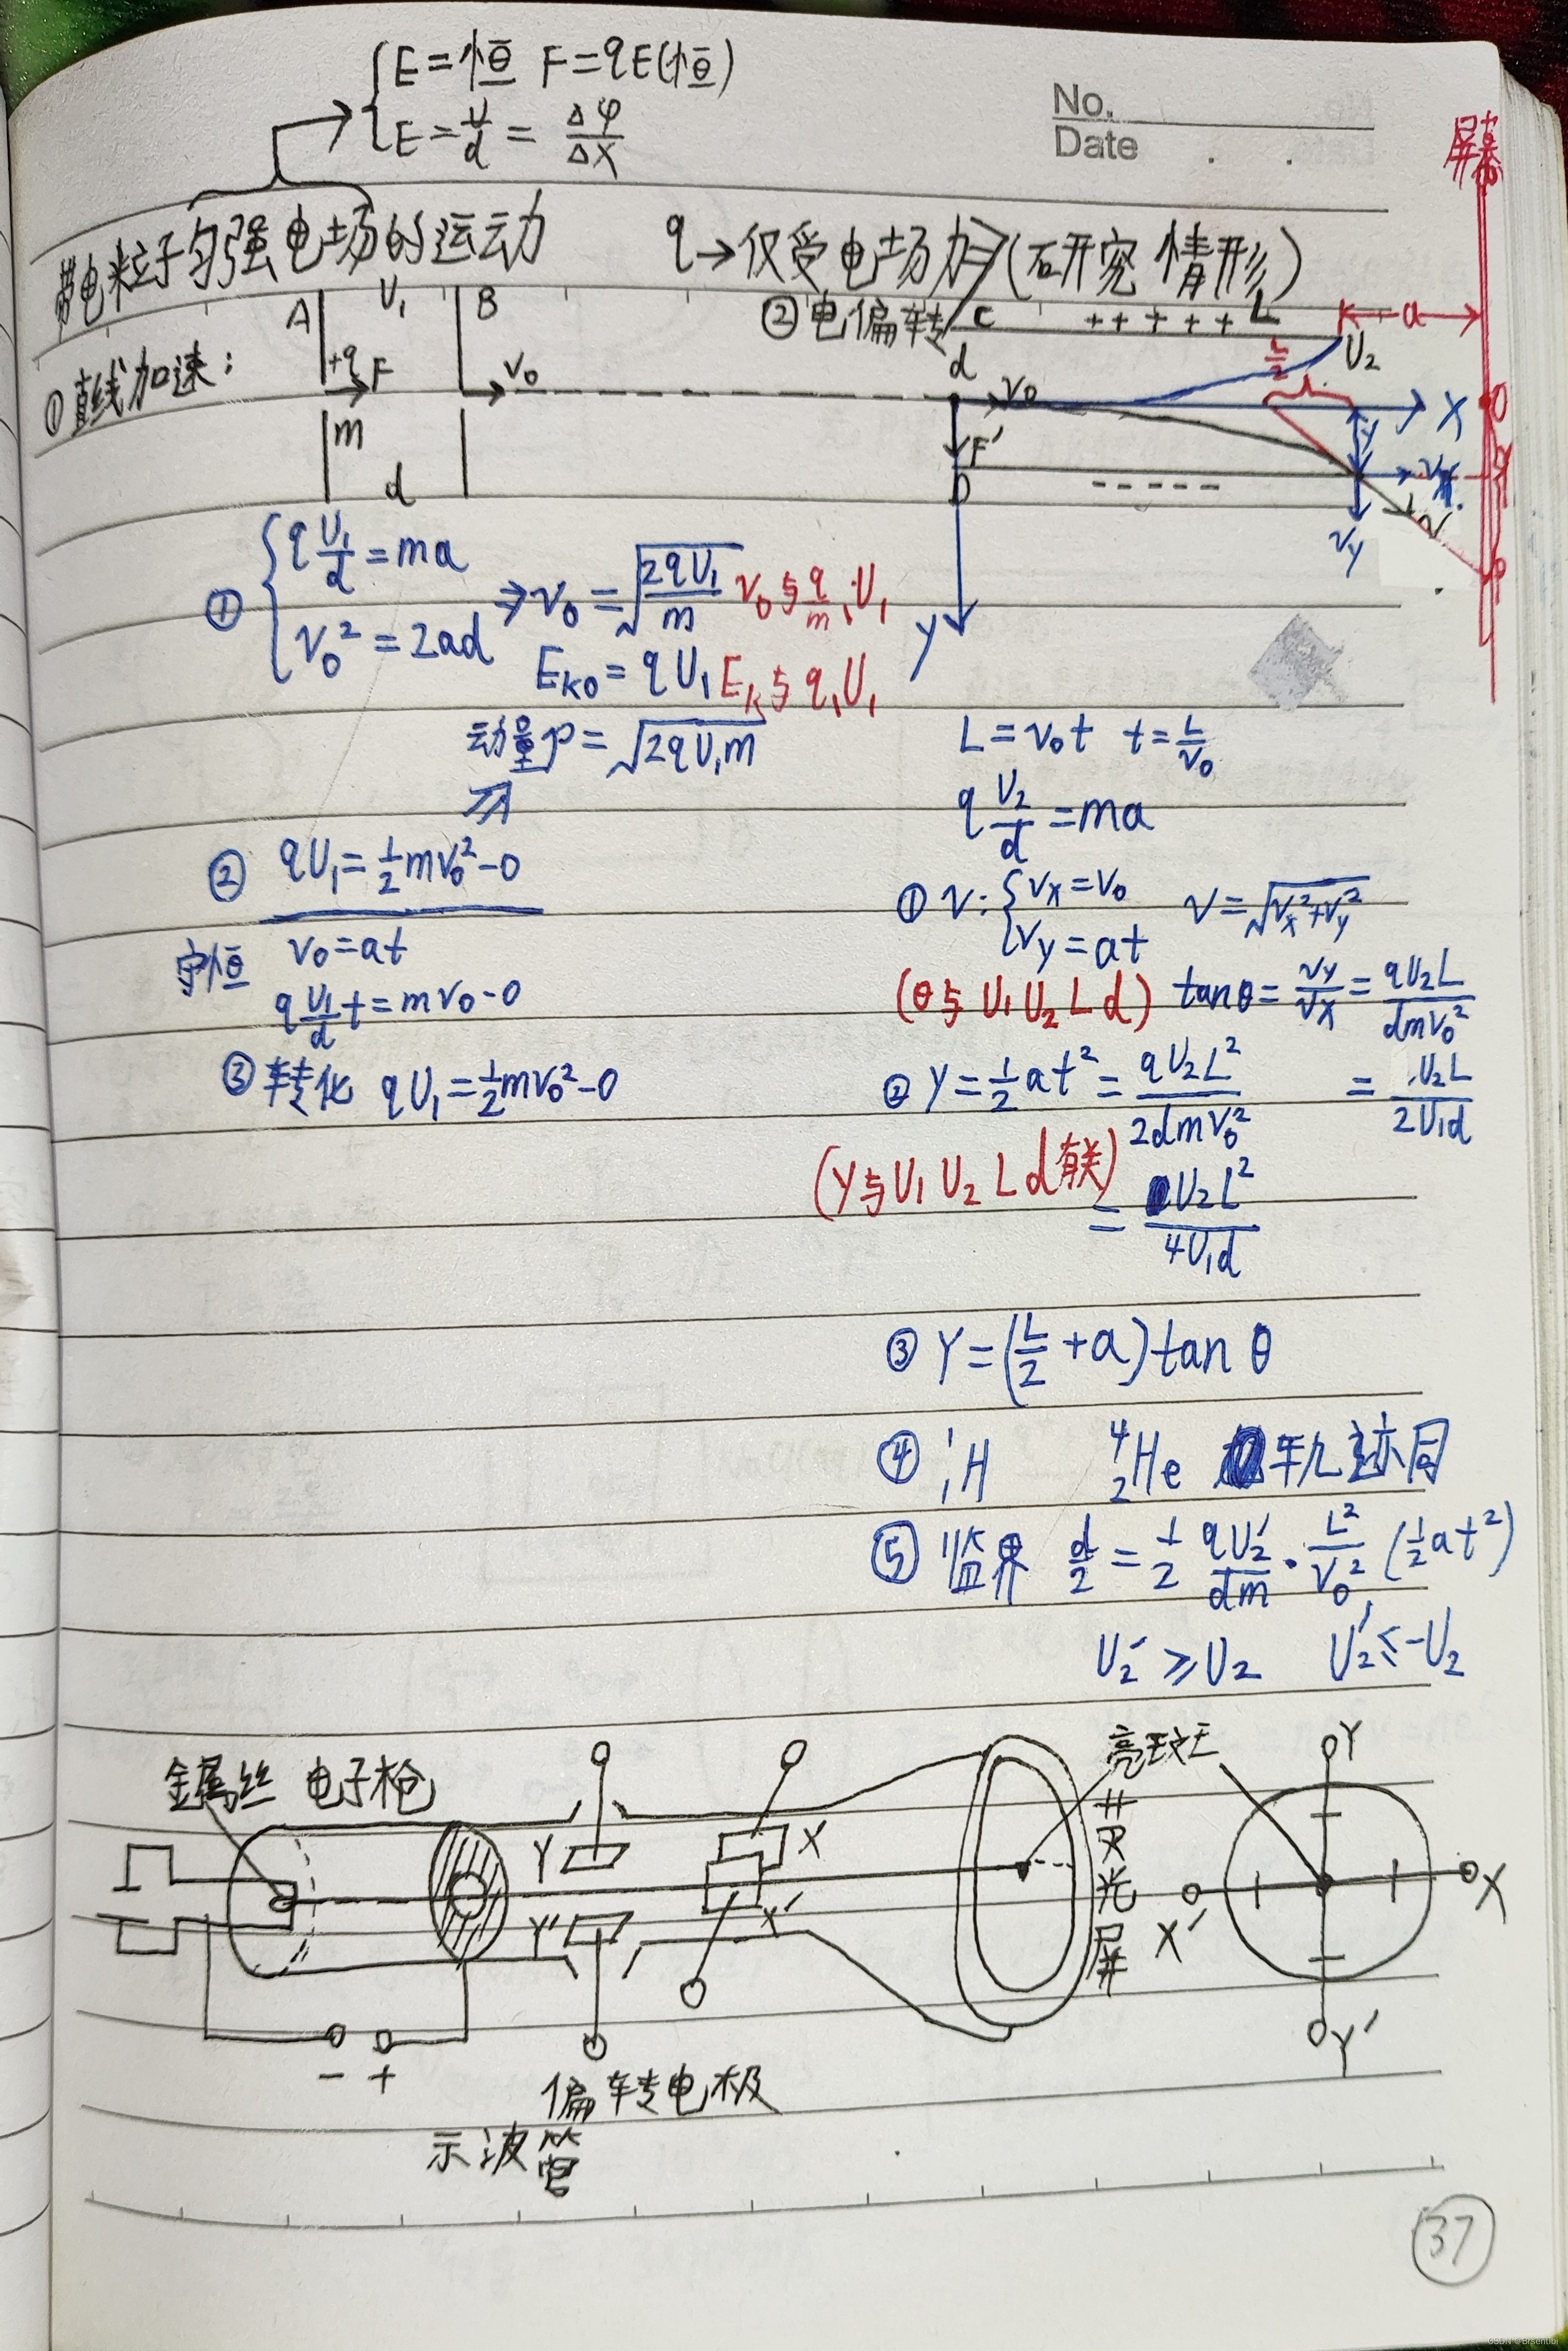 E=恒 F=qE(恒)
E=U/d=Δφ/Δx
No.
Date
屏幕
带电粒子匀强电场的运动
q→仅受电场力(研究情形)
①直线加速:
A U₁ B
+q F v₀
m
d
②电偏转 C +++++ L a
d L/2 U₂
v₀ X O
F' y
D ----- vx
vy v
y
① q U₁/d=ma
v₀²=2ad
⇒v₀=√(2qU₁/m) v₀与q/m,U₁
Eₖ₀=qU₁ Eₖ与q,U₁
动量p=√(2qU₁m)
② qU₁=½mv₀²-0
守恒 v₀=at
q U₁/d t=mv₀-0
③转化 qU₁=½mv₀²-0
L=v₀t t=L/v₀
q U₂/d=ma
① v: vx=v₀ v=√(vx²+vy²)
vy=at
(θ与U₁U₂Ld) tanθ=vy/vx=qU₂L/dmv₀²
=U₂L/2U₁d
② y=½at²=qU₂L²/2dmv₀²
(y与U₁U₂Ld有关)
=U₂L²/4U₁d
③ Y=(L/2+a)tanθ
④ ¹₁H ⁴₂He 轨迹同
⑤ 临界 d/2=½ qU₂'/dm·L²/v₀² (½at²)
U₂'≥U₂ U₂'≤-U₂
金属丝 电子枪
Y X
Y' X'
- +
偏转电极
示波管
亮斑
荧光屏
Y
X' X
Y'
37